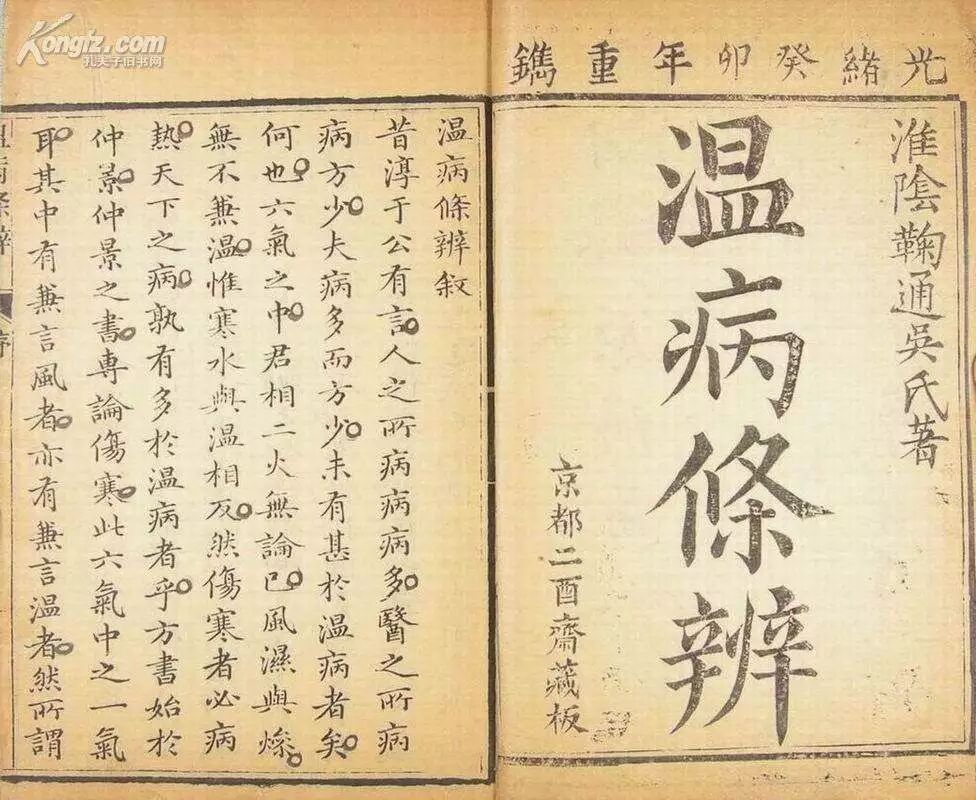 光緒癸卯年重鐫
淮陰鞠通吳氏著
温病條辨
京都二酉齋藏板
温病條辨敘
昔淳于公有言人之所病病病多醫之所病
病方少夫病多而方少未有甚於温病者矣
何也六氣之中君相二火無論已風濕與燥
無不兼温惟寒水與温相反然傷寒者必病
熱天下之病孰有多於温病者乎方書始於
仲景仲景之書專論傷寒此六氣中之一氣
耳其中有兼言風者亦有兼言温者然所謂
Kongfz.com
孔夫子旧书网